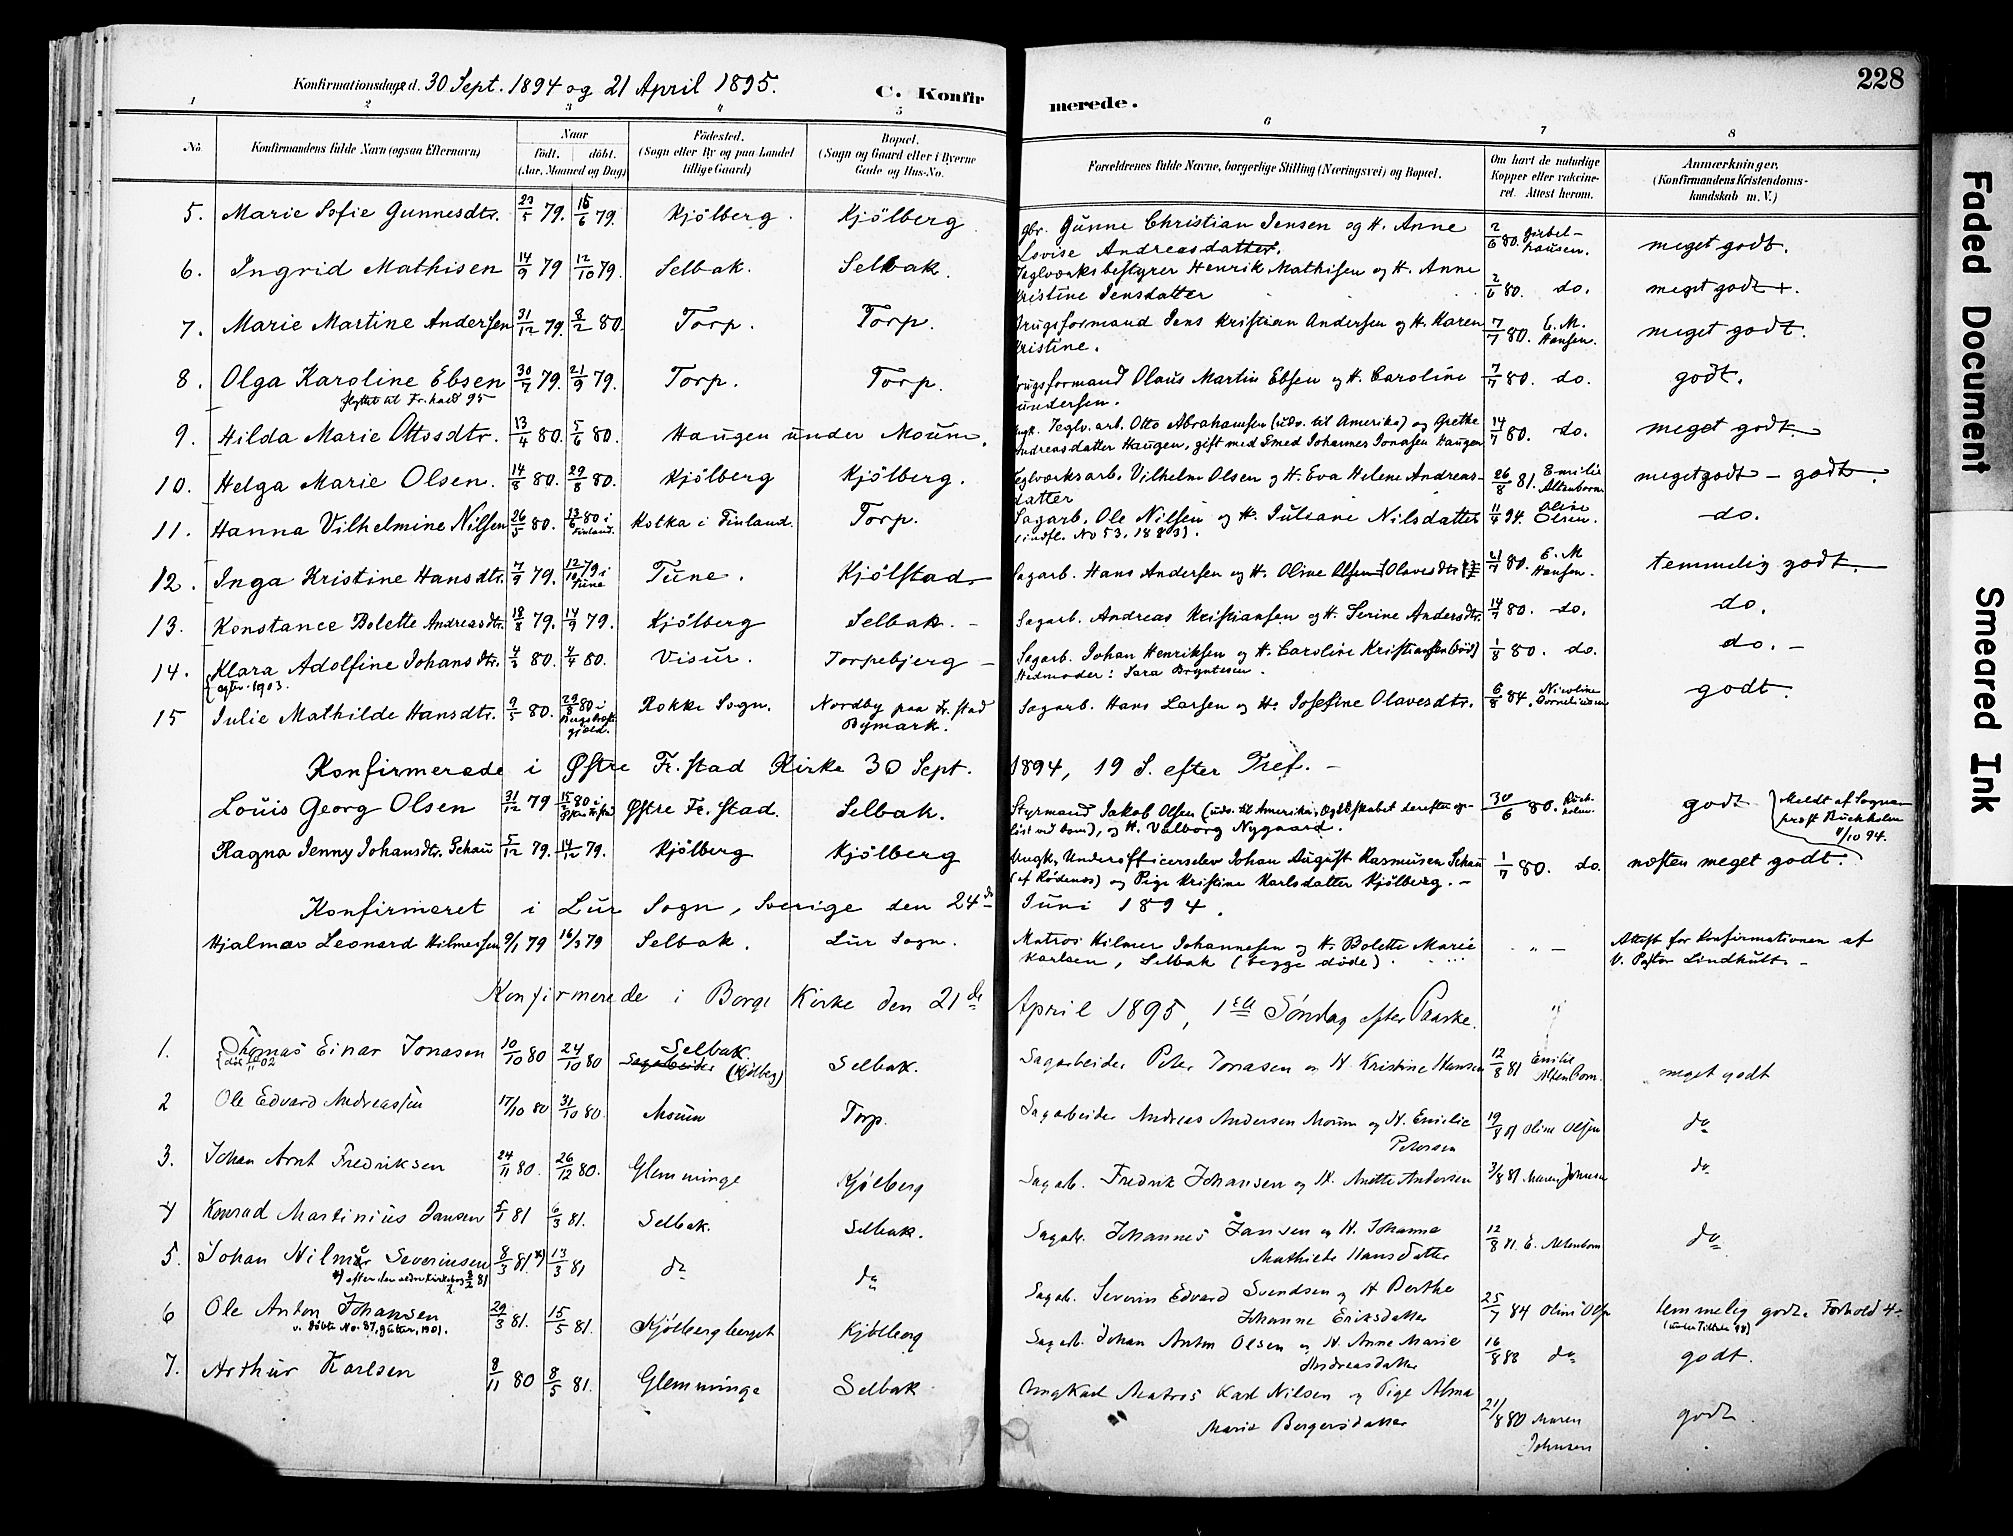 Konfirmationsdage d. 30 Sept. 1894 og 21 April 1895.
C. Konfirmerede.
228
1 2 3 4 5 6 7 8
No. Konfirmandens fulde Navn (ogsaa Efternavn) Naar födt. döbt. (Aar, Maaned og Dag) Födested. (Sogn eller By og paa Landet tillige Gaard) Bopæl. (Sogn og Gaard eller i Byerne Gade og Hus-No. Forældrenes fulde Navne, borgerlige Stilling (Næringsvei) og Bopæl. Om havt de naturlige Kopper eller vakcineret. Attest herom. Anmærkninger. (Konfirmandens Kristendomskundskab m. V.)
5. Marie Sofie Gunnesdtr. 23/5 79. 15/6 79. Kjölberg. Kjölberg gbr. Gunne Christian Jensen og H. Anne Lovise Andreasdatter. 2/6 80. Girbelhausen. meget godt.
6. Ingrid Mathisen 14/9 79 12/10 79. Selbak. Selbak. Teglværksbestyrer Henrik Mathisen og H. Anne Kristine Jensdatter 2/6 80. do. meget godt +.
7. Marie Martine Andersen 31/12 79. 8/2 80. Torp. Torp. Brugsformand Jens Kristian Andersen og H. Karen Kristine. 7/7 80. E. M. Hansen. meget godt.
8. Olga Karoline Ebsen 30/7 79. 21/9 79. Torp. Torp. Brugsformand Olaus Martin Ebsen og H. Caroline Gundersen. 7/7 80. do. godt.
flyttet til Fr.hald 95
9. Hilda Marie Ottosdtr. 13/4 80. 5/6 80. Haugen under Moum. Ungk. Teglv. arb. Otto Abrahamsen (udv. til Amerika) og Grethe Andreasdatter Haugen, gift med Smed Johannes Jonasen Haugen 14/7 80. do. meget godt.
10. Helga Marie Olsen. 14/8 80. 29/8 80. Kjölberg Kjölberg. Teglværksarb. Vilhelm Olsen og H. Eva Helene Andreasdatter 26/8 81. Emilie Altenborn meget godt - godt.
11. Hanna Vilhelmine Nilsen 26/5 80. 13/6 80 i Finland. Kotka i Finland. Torp. Sagarb. Ole Nilsen og H. Juliane Nilsdatter (indfl. No 53, 1883). 11/4 94. Oline Olsen. do.
12. Inga Kristine Hansdtr. 7/9 79. 12/10 79 i Tune Tune. Kjölstad. Sagarb. Hans Andersen og H. Oline Olsen (Olavesdtr) 21/7 80. E. M Hansen. temmelig godt.
13. Konstance Bolette Andreasdtr. 18/8 79. 14/9 79. Kjölberg Selbak. - Sagarb. Andreas Kristiansen og H. Serine Andersdtr. 14/7 80. do. do.
14. Klara Adolfine Johansdtr. 4/3 80. 4/4 80. Visur. Torpebjerg - Sagarb. Johan Henriksen og H. Caroline Kristiansen (död) Stedmoder: Sara Bryntesen. 1/8 80. do. do. -
egtev. 1903.
15 Julie Mathilde Hansdtr. 9/5 80. 29/8 80 i Rokke Sogn. Nordby paa Fr.stad Bymark. Sagarb. Hans Larsen og H. Josefine Olavesdtr. 6/8 84. Nicoline Corneliusen godt.
Konfirmerede i Østre Fr.stad Kirke 30 Sept. 1894, 19 S. efter Tref. -
Louis Georg Olsen 31/12 79 15/2 80 i Østre Fr.stad Østre Fr.stad. Selbak. Styrmand Jakob Olsen (udv. til Amerika, Egteskabet derefter opløst ved dom), og H. Valborg Nygaard. 30/6 80. Buckholm. godt Meldt af Sogneprest Buckholm 4/10 94.
Ragna Jenny Johansdtr. Schau 5/12 79. 14/12 79. Kjölberg Kjölberg Ungk. Underofficerselev Johan August Rasmusen Schau (af Rödenes) og Pige Kristine Karlsdatter Kjölberg. - 1/7 80. do. næsten meget godt.
Konfirmeret i Lur Sogn, Sverige den 24de Juni 1894.
Hjalmar Leonard Hilmersen 9/1 79 16/3 79 Selbak. Lur Sogn. Matros Hilmer Johannesen og H. Bolette Marie Karlsen, Selbak (begge döde). " - Attest for Konfirmationen af V. Pastor Lindhult. -
Konfirmerede i Borge Kirke den 21de April 1895, 1ste Søndag efter Paaske.
1. Thomas Einar Jonasen 10/10 80 24/10 80 Selbak Sagarbeider (Kjölberg) Selbak. Sagarbeider Peter Jonasen og H. Kristine Hansen 12/8 81 Emilie Altenborn. meget godt
2 Ole Edvard Andreassen 17/10 80 31/10 80. Moum Torp. Sagarbeider Andreas Andersen Moum og H. Emilie Petersen 19/8 81 Oline Olsen do
3. Johan Arnt Fredriksen 24/11 80. 26/12 80. Glemminge Kjölberg Sagarb. Fredrik Johansen og H. Anette Andersen 3/8 81 Maren Johnsen do
4 Konrad Martinius Jansen 5/1 81 6/3 81. Selbak. Selbak. Sagarb. Johannes Jansen og H. Johanne Mathilde Hansdatter 12/8 81. E. Altenborn do
5. Johan Hilmer Severinsen 8/3 81 *) 13/3 81 do do Sagarb. Severin Edvard Svendsen og H Berthe Johanne Eriksdatter 25/7 84 Oline Olsen temmelig godt. Forhold 4-
*) efter den ældre Kirkebog 8/2 81
6 Ole Anton Johansen 29/3 81. 15/5 81. Kjölberg berget Kjölberg Sagarb. Johan Anton Olsen og H. Anne Marie Andreasdatter 16/8 83 do godt.
v. döbte No. 87, gutter, 1901.
7. Arthur Karlsen 8/11 80 8/5 81. Glemminge Selbak Ungkarl Matros Karl Nilsen og Pige Alma Marie Borgersdatter 21/8 80 Maren Johnsen godt.
Faded Document
Smeared Ink